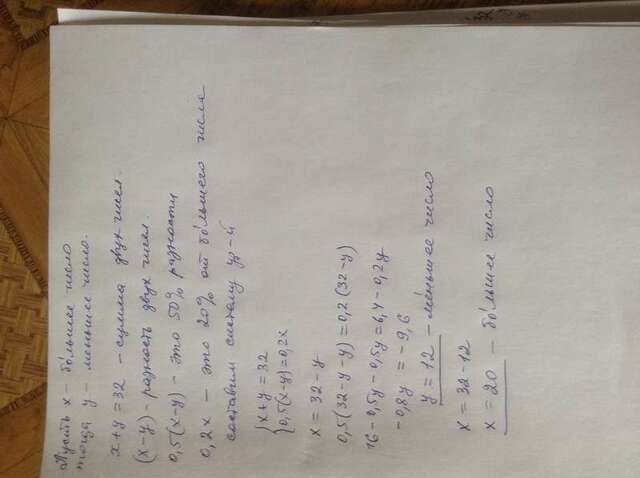 Пусть x – бо́льшее число
тогда y – меньшее число.
x + y = 32 – сумма двух чисел.
(x–y) – разность двух чисел.
0,5(x–y) – это 50% разности
0,2x – это 20% от бо́льшего числа
составим систему ур-й
{x + y = 32
{0,5(x–y) = 0,2x
x = 32 – y
0,5(32–y–y) = 0,2(32–y)
16 – 0,5y – 0,5y = 6,4 – 0,2y
–0,8y = –9,6
y = 12 – ме́ньшее число
x = 32–12
x = 20 – бо́льшее число